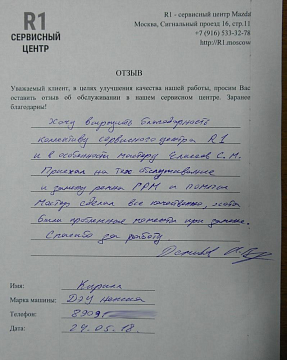 R1
СЕРВИСНЫЙ
ЦЕНТР
R1 - сервисный центр Mazda
Москва, Сигнальный проезд 16, стр.11
+7 (916) 533-32-78
http://R1.moscow
ОТЗЫВ
Уважаемый клиент, в целях улучшения качества нашей работы, просим Вас
оставить отзыв об обслуживании в нашем сервисном центре. Заранее
благодарны!
Хочу выразить благодарность
коллективу сервисного центра R1
и в особенности мастеру С.М.
Приехал на тех обслуживание
и замену ремня ГРМ и помпы
Мастер сделал все качественно, хотя
были проблемные моменты при замене.
Спасибо за работу
Имя: Кирилл
Марка машины: Дэу нексия
Телефон: 8909
Дата: 24.05.18.